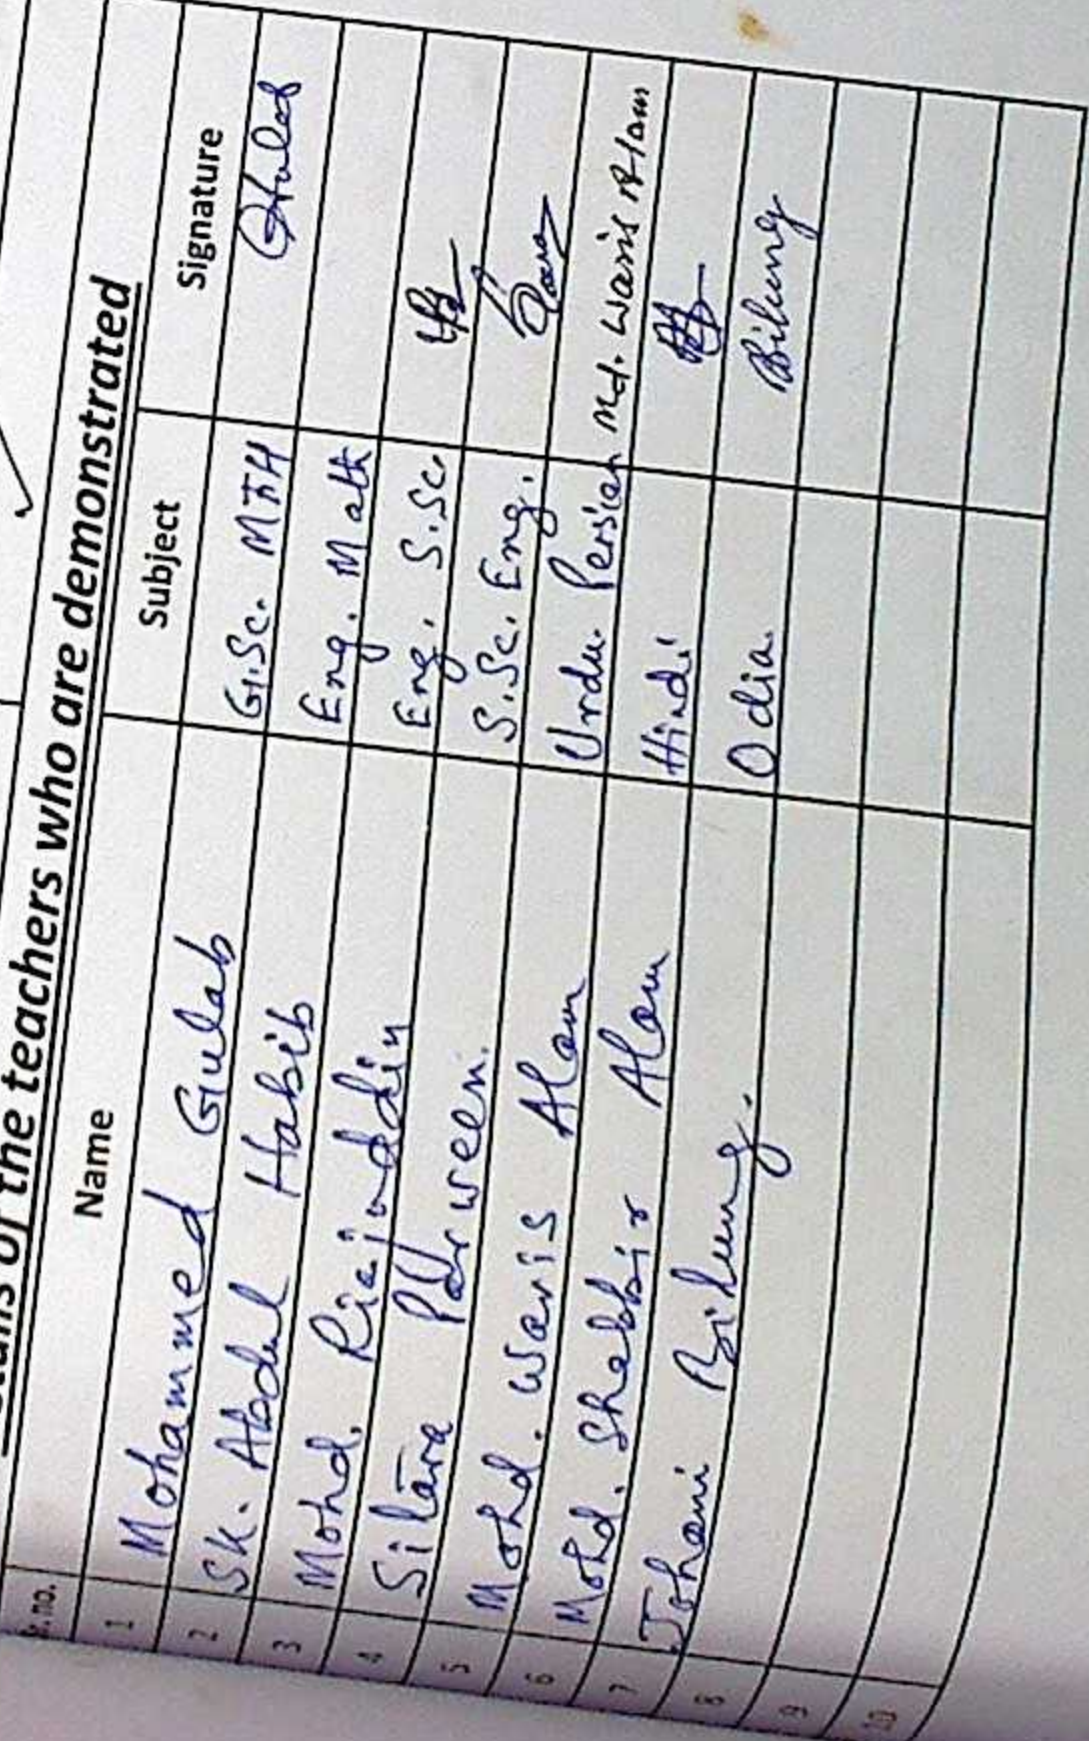 of the teachers who are demonstrated
Name Subject Signature
1 Mohammed Gulab G.Sc. MTH Gulab
2 Sk. Abdul Habib Eng. Math
3 Mohd. Riajuddin Eng. S.Sc.
4 Sitara Parween. S.Sc. Eng.
5 Mohd. Waris Alam Urdu. Persian Md. Waris Alam
6 Mohd. Shabbir Alam Hindi
7 Johani Bilung. Odia Bilung
8
9
10